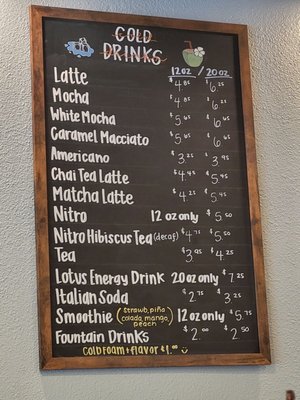 COLD
DRINKS
12oz / 20oz
Latte $4.85 $6.25
Mocha $4.85 $6.25
White Mocha $5.65 $6.65
Caramel Macciato $5.65 $6.65
Americano $3.25 $3.95
Chai Tea Latte $4.45 $5.45
Matcha Latte $4.25 $5.45
Nitro 12 oz only $5.50
Nitro Hibiscus Tea (decaf) $4.75 $5.50
Tea $3.95 $4.25
Lotus Energy Drink 20oz only $7.25
Italian Soda $2.75 $3.25
Smoothie (Strawb, piña colada, mango, peach) 12oz only $5.75
Fountain Drinks $2.00 $2.50
Cold Foam + flavor $1.00